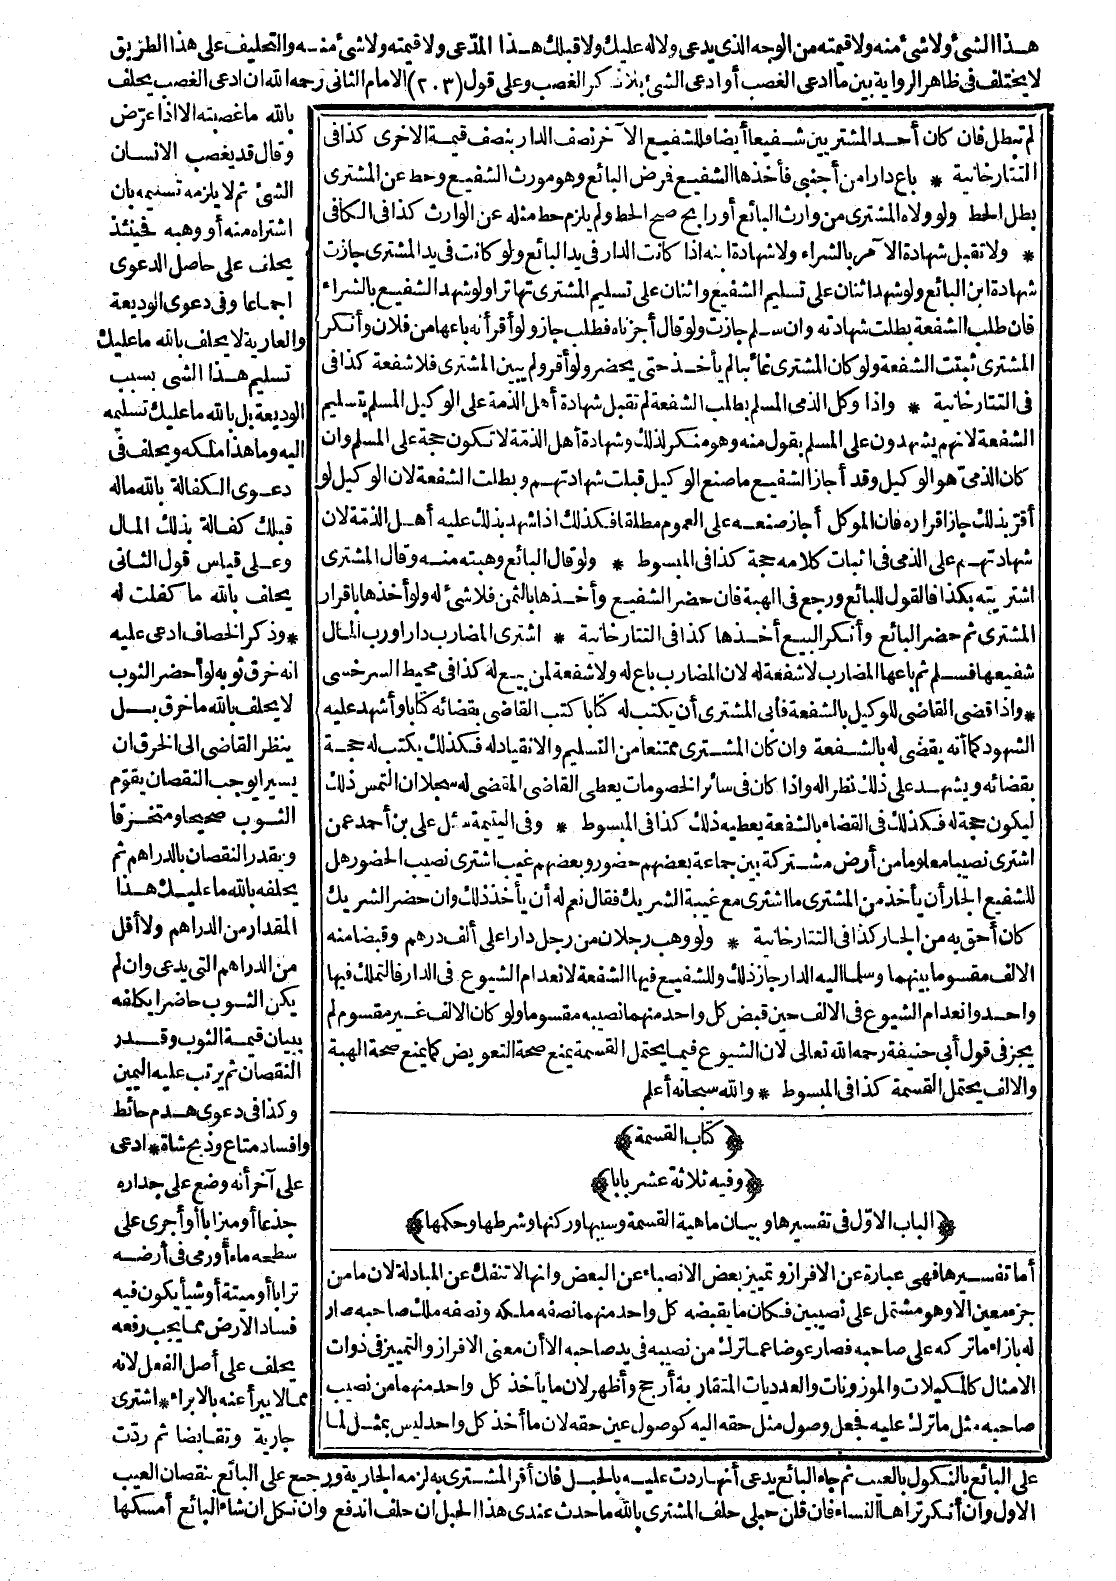 هذا الشئ ولا شئ منه ولا قيمته من الوجه الذي يدعى ولا له عليك ولا قبلك هذا المدّعى ولا قيمته ولا شئ منه والتحليف على هذا الطريق
لا يختلف فى ظاهر الرواية بين ما ادعى الغصب أو ادعى الشئ بلا ذكر الغصب وعلى قول (٢٠٣) الامام الثانى رحمه الله ان ادعى الغصب يحلف
بالله ما غصبته الا اذا عرّض
وقال قد يغصب الانسان
الشئ ثم لا يلزمه تسليمه بان
اشتراه منه أو وهبه فحينئذ
يحلف على حاصل الدعوى
اجماعا وفى دعوى الوديعة
والعارية لا يحلف بالله ما عليك
تسليم هذا الشى بسبب
الوديعة بل بالله ما عليك تسليمه
اليه وما هذا ملكه ويحلف فى
دعوى الكفالة بالله ماله
قبلك كفالة بذلك المال
وعلى قياس قول الثانى
يحلف بالله ما كفلت له
* وذكر الخصاف ادعى عليه
انه خرق ثوبه لو أحضر الثوب
لا يحلف بالله ما خرق بل
ينظر القاضى الى الخرق ان
يسيرا يوجب النقصان يقوّم
الثوب صحيحا ومتخرقا
ويقدر النقصان بالدراهم ثم
يحلفه بالله ما عليك هذا
المقدار من الدراهم ولا أقل
من الدراهم التى يدعى وان لم
يكن الثوب حاضرا يكلفه
ببيان قيمة الثوب وقدر
النقصان ثم يرتب عليه اليمين
وكذا فى دعوى هدم حائط
وافساد متاع وذبح شاة * ادعى
على آخر أنه وضع على جداره
جذعا أو ميزابا أو أجرى على
سطحه ماء أو رمى فى أرضه
ترابا أو ميتة أو شيأ يكون فيه
فساد الارض مما يجب رفعه
يحلف على أصل الفعل لانه
مما لا يبرأ عنه بالابراء * اشترى
جارية وتقابضا ثم ردّت
لم تبطل فان كان أحد المشتريين شفيعا أيضا فللشفيع الآخر نصف الدار بنصف قيمة الاخرى كذا فى
التتارخانية * باع دارا من أجنبى فأخذها الشفيع فرض البائع وهو مورث الشفيع وحط عن المشترى
بطل الحط ولو ولاه المشترى من وارث البائع أو رابح صح الحط ولم يلزم حط مثله عن الوارث كذا فى الكافى
* ولا تقبل شهادة الآمر بالشراء ولا شهادة ابنه اذا كانت الدار فى يد البائع ولو كانت فى يد المشترى جازت
شهادة ابن البائع ولو شهد اثنان على تسليم الشفيع واثنان على تسليم المشترى تهاتر او لو شهد الشفيع بالشراء
فان طلب الشفعة بطلت شهادته وان سلم جازت ولو قال أجزناه فطلب جاز ولو أقر أنه باعها من فلان وأنكر
المشترى ثبتت الشفعة ولو كان المشترى غائبا لم يأخذ حتى يحضر ولو أقر ولم يبين المشترى فلا شفعة كذا فى
فى التتارخانية * واذا وكل الذمى المسلم بطلب الشفعة لم تقبل شهادة أهل الذمة على الوكيل المسلم بتسليم
الشفعة لانهم يشهدون على المسلم بقول منه وهو منكر لذلك وشهادة أهل الذمّة لا تكون حجة على المسلم وان
كان الذمىّ هو الوكيل وقد أجاز الشفيع ما صنع الوكيل قبلت شهادتهم وبطلت الشفعة لان الوكيل لو
أقرّ بذلك جاز اقراره فان الموكل أجاز صنعه على العموم مطلقا فكذلك اذا شهد بذلك عليه أهل الذمّة لان
شهادتهم على الذمى فى اثبات كلامه حجة كذا فى المبسوط * ولو قال البائع وهبته منه وقال المشترى
اشتريته بكذا فالقول للبائع ورجع فى الهبة فان حضر الشفيع وأخذها بالثمن فلا شئ له ولو أخذها باقرار
المشترى ثم حضر البائع وأنكر البيع أخذها كذا فى التتارخانية * اشترى المضارب دارا ورب المال
شفيعها فسلم ثم باعها المضارب لا شفعة له لان المضارب باع له ولا شفعة لمن بيع له كذا فى محيط السرخسى
* واذا قضى القاضى للوكيل بالشفعة فأبى المشترى أن يكتب له كتابا كتب القاضى بقضائه كتابا وأشهد عليه
الشهود كما أنه يقضى له بالشفعة وان كان المشترى ممتنعا من التسليم والانقياد له فكذلك يكتب له حجة
بقضائه ويشهد على ذلك نظرا له واذا كان فى سائر الخصومات يعطى القاضى المقضى له سجلا ان التمس ذلك
ليكون حجة له فكذلك فى القضاء بالشفعة يعطيه ذلك كذا فى المبسوط * وفى اليتيمة سئل على بن أحمد عمن
اشترى نصيبا معلوما من أرض مشتركة بين جماعة بعضهم حضور وبعضهم غيب اشترى نصيب الحضور هل
للشفيع الجار أن يأخذ من المشترى ما اشترى مع غيبة الشريك فقال نعم له أن يأخذ ذلك وان حضر الشريك
كان أحق به من الجار كذا فى التتارخانية * ولو وهب رجلان من رجل دارا على ألف درهم وقبضا منه
الالف مقسوما بينهما وسلما اليه الدار جاز ذلك وللشفيع فيها الشفعة لانعدام الشيوع فى الدار فالتملك فيها
واحد وانعدام الشيوع فى الالف حين قبض كل واحد منهما نصيبه مقسوما ولو كان الالف غير مقسوم لم
يجز فى قول أبى حنيفة رحمه الله تعالى لان الشيوع فيما يحتمل القسمة يمنع صحة التعويض كما يمنع صحة الهبة
والالف يحتمل القسمة كذا فى المبسوط * والله سبحانه أعلم
﴿كتاب القسمة﴾
﴿وفيه ثلاثة عشر بابا﴾
﴿الباب الاوّل فى تفسيرها وبيان ماهية القسمة وسببها وركنها وشرطها وحكمها﴾
أما تفسيرها فهى عبارة عن الافراز وتمييز بعض الانصباء عن البعض وانها لا تنفك عن المبادلة لان ما من
جزء معين الا وهو مشتمل على نصيبين فكان ما يقبضه كل واحد منهما نصفه ملكه ونصفه ملك صاحبه صار
له بازاء ما تركه على صاحبه فصار عوضا عما ترك من نصيبه فى يد صاحبه الا أن معنى الافراز والتمييز فى ذوات
الامثال كالمكيلات والموزونات والعدديات المتقاربة أرجح وأظهر لان ما يأخذ كل واحد منهما من نصيب
صاحبه مثل ما ترك عليه فجعل وصول مثل حقه اليه كوصول عين حقه لان ما أخذ كل واحد ليس بمثل لما
على البائع بالنكول بالعيب ثم جاء البائع يدعى أنها ردت عليه بالحبل فان أقر المشترى به لزمه الجارية ورجع على البائع بنقصان العيب
الاول وان أنكر تراها النساء فان قلن حبلى حلف المشترى بالله ما حدث عندى هذا الحبل ان حلف اندفع وان نكل ان شاء البائع أمسكها